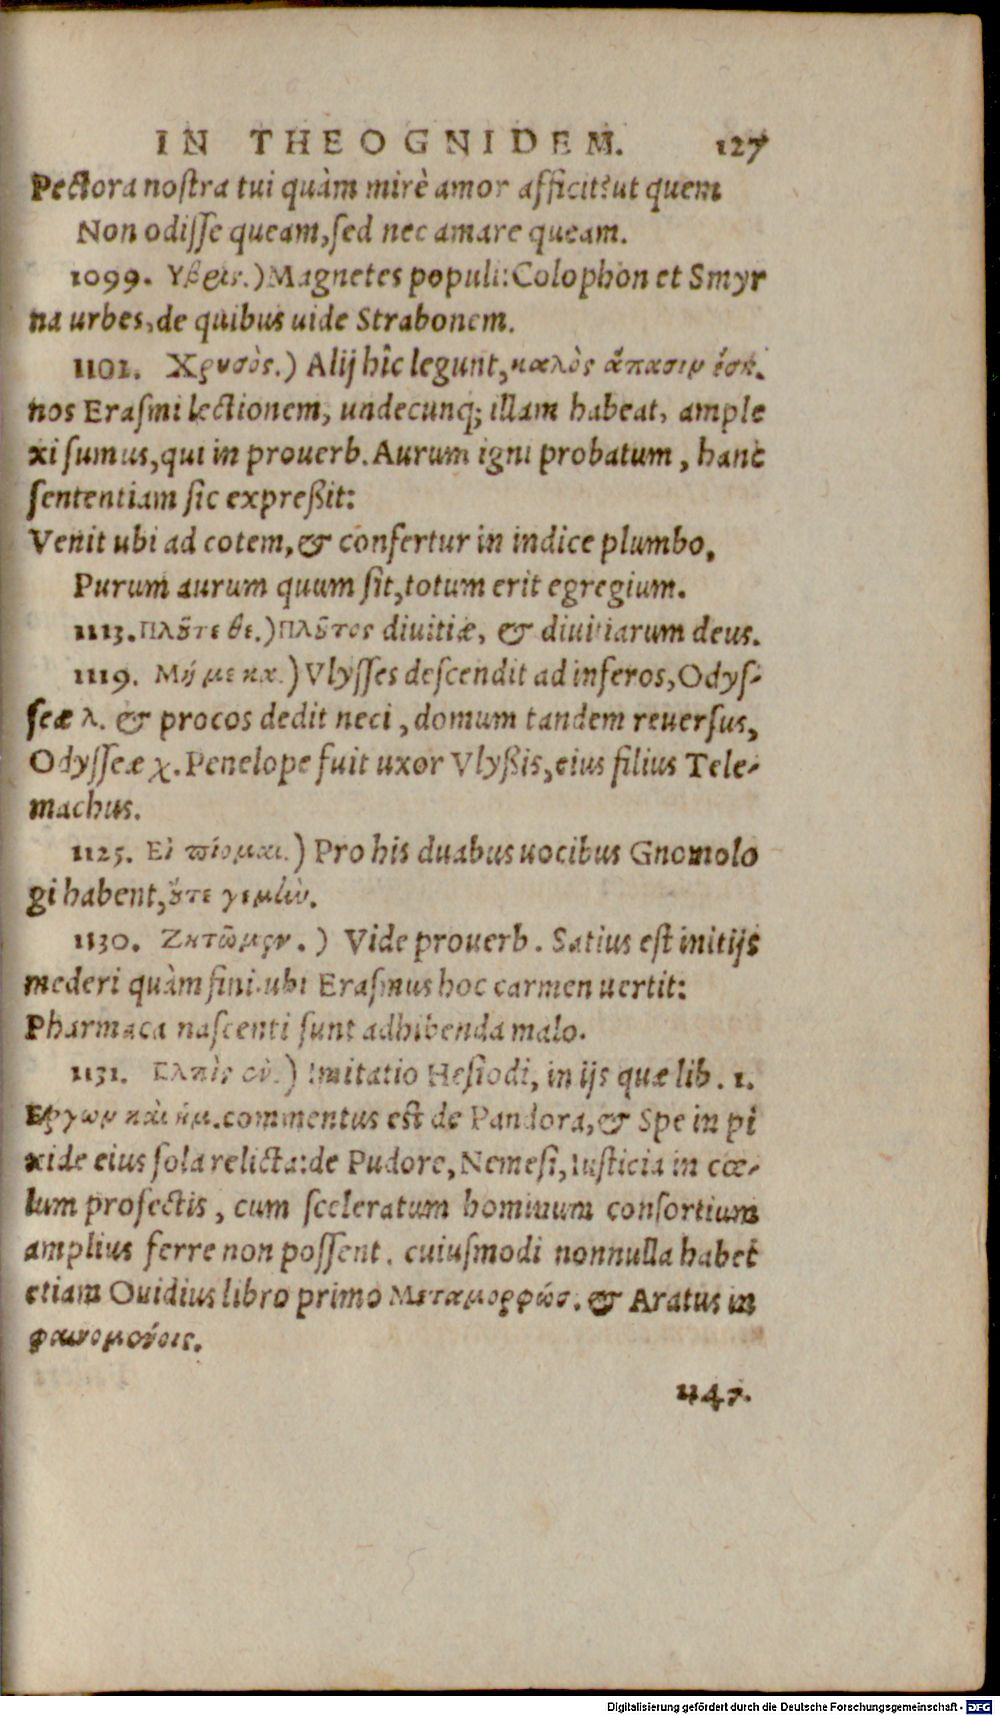 IN THEOGNIDEM. 127
Pectora nostra tui quàm mirè amor afficit: ut quem
Non odisse queam, sed nec amare queam.
1099. Υβρις.) Magnetes populi: Colophon et Smyr
na urbes, de quibus uide Strabonem.
1101. Χρυσὸς.) Alij hîc legunt, καλὸς ἅπασιν ἔσῃ.
nos Erasmi lectionem, undecunq; illam habeat, ample
xi sumus, qui in prouerb. Aurum igni probatum, hanc
sententiam sic expreßit:
Venit ubi ad cotem, & confertur in indice plumbo,
Purum aurum quum sit, totum erit egregium.
1113. Πλȣ̃τε θε.) Πλȣ̃τος diuitiæ, & diuitiarum deus.
1119. Μή με κα.) Vlysses descendit ad inferos, Odys-
seæ λ. & procos dedit neci, domum tandem reuersus,
Odysseæ χ. Penelope fuit uxor Vlyßis, eius filius Tele-
machus.
1125. Εἰ πίομαι.) Pro his duabus uocibus Gnomolo
gi habent, ὅτε γεμὶν.
1130. Ζητῶμεν.) Vide prouerb. Satius est initijs
mederi quàm fini. ubi Erasmus hoc carmen uertit:
Pharmaca nascenti sunt adhibenda malo.
1131. Ελπὶς ἐν.) Imitatio Hesiodi, in ijs quæ lib. 1.
Εργων καὶ ἡμ. commentus est de Pandora, & Spe in pi
xide eius sola relicta: de Pudore, Nemesi, Iusticia in cœ-
lum profectis, cum sceleratum hominum consortium
amplius ferre non possent. cuiusmodi nonnulla habet
etiam Ouidius libro primo Μεταμορφώσ. & Aratus in
φαινομένοις.
1147.
Digitalisierung gefördert durch die Deutsche Forschungsgemeinschaft - DFG